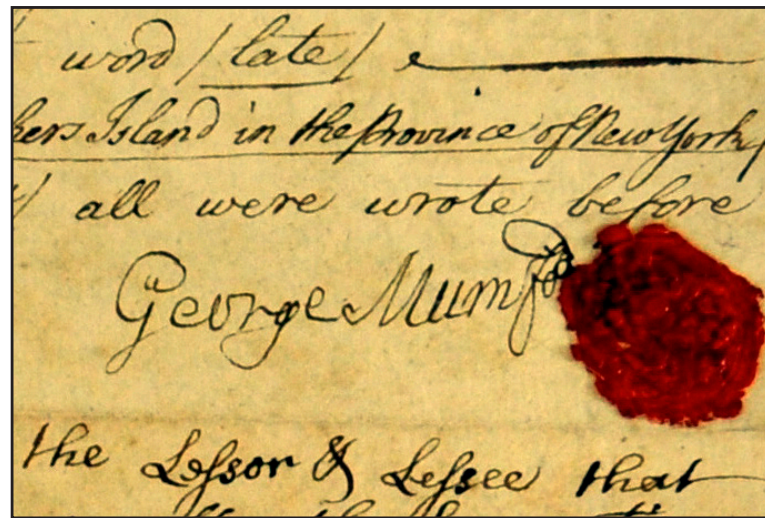 word / late /
hers Island in the Province of New York,
all were wrote before
George Mumfo
the Leſsor & Leſsee that